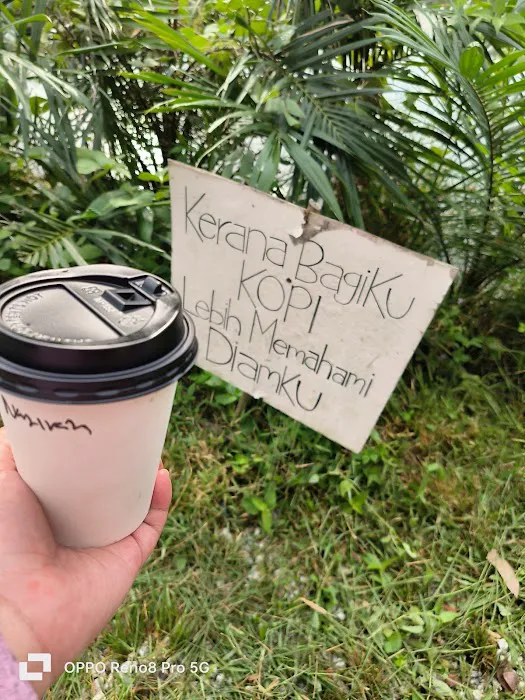 Kerana BagiKu
KOPI
Lebih Memahami
DiamKu
OPPO Reno8 Pro 5G